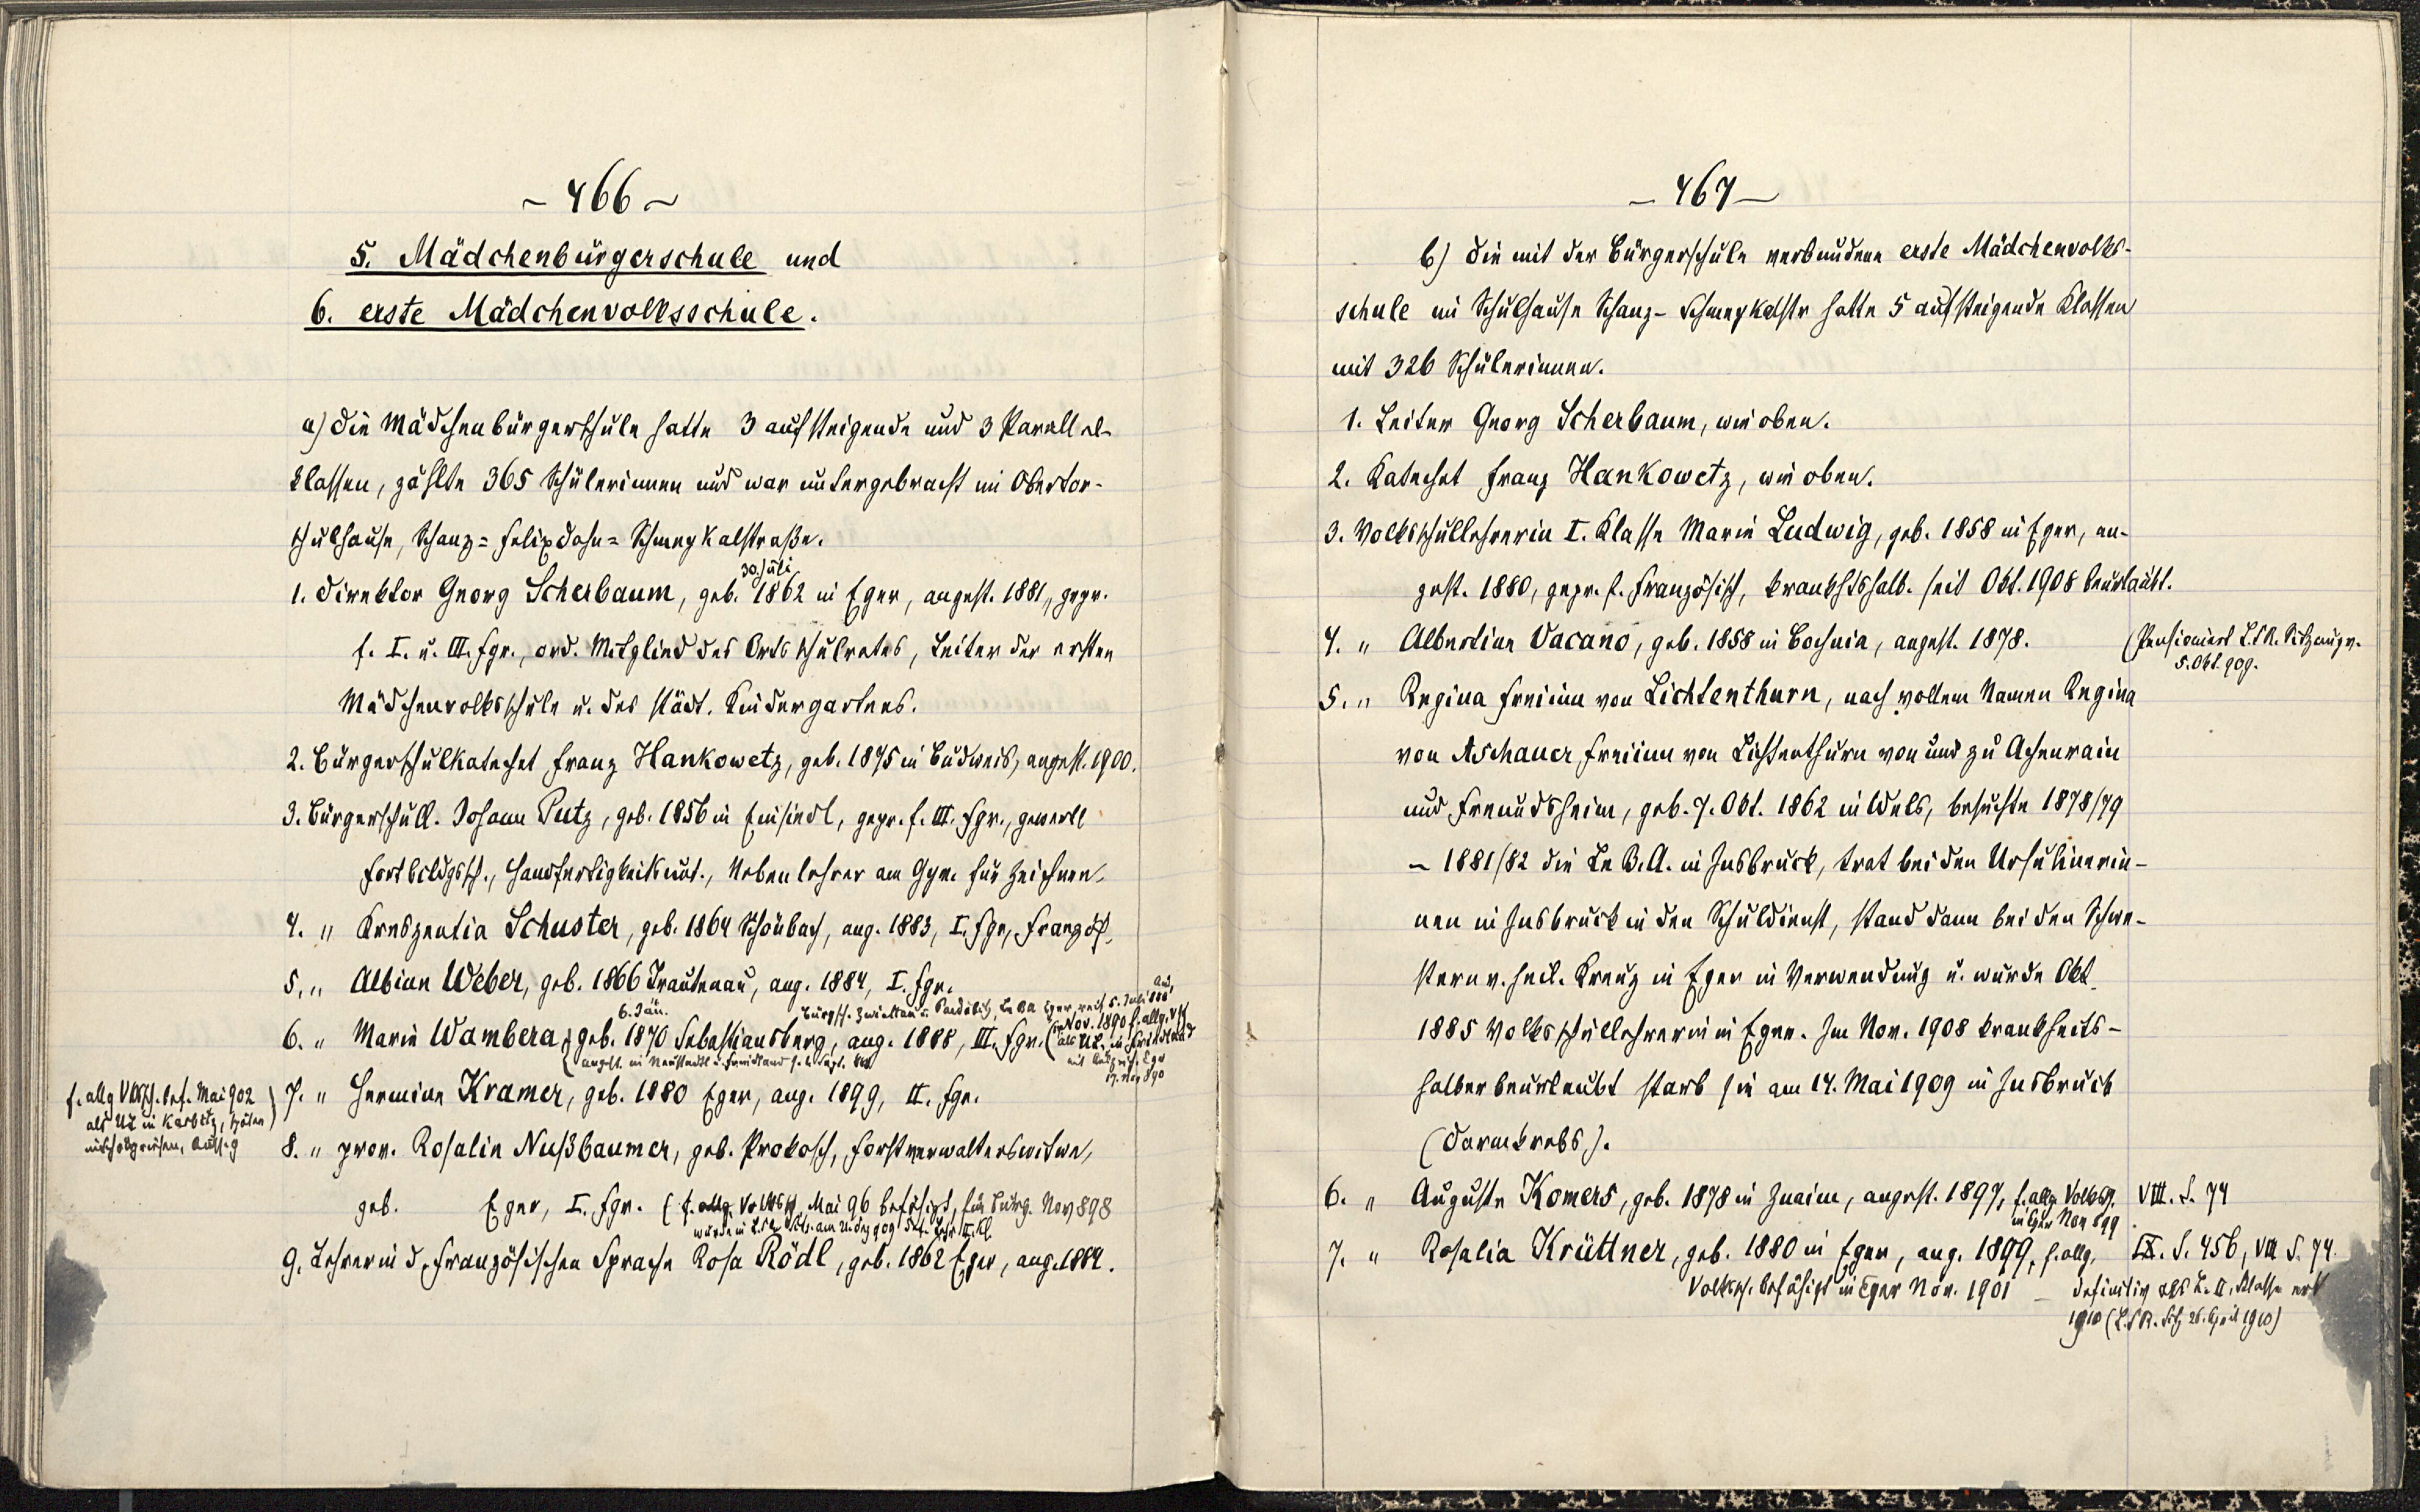 - 466 -
5. Mädchenbürgerschule und
6. erste Mädchenvolksschule.
a) Die Mädchenbürgerschule hatte 3 aufsteigende und 3 Parallel-
klassen, zählte 365 Schülerinnen und war untergebracht im Obertor-
schulhause, Schanz= Felixdahn= Schmeykalstraße.
30. Juli
1. Direktor Georg Scherbaum, geb. 1862 in Eger, angest. 1881, gepr.
f. I. u. III. Fgr., ord. Mitglied des Ortsschulrates, Leiter der ersten
Mädchenvolksschule u. des städt. Kindergartens.
2. Bürgerschulkatechet Franz Hankowetz, geb. 1875 in Budweis, angest. 1900.
3. Bürgerschull. Johann Putz, geb. 1856 in Einsiedl, gepr. f. III. Fgr., gewerbl
Fortbildgssch., Handfertigkeitsunt., Nebenlehrer am Gym. für Zeichnen.
4. " Kreszentia Schuster, geb. 1864 Schönbach, ang. 1883, I. Fgr, Französ.
5. " Albine Weber, geb. 1866 Trautenau, ang. 1884, I. Fgr.
6. Jän. Bürgsch. Zwickau u. LBA Eger, reif 5. Juli 888
6. " Marie Wambera, geb. 1870 Sebastiansberg, ang. 1888, III. Fgr. (Nov. 1890 f. allg. VS
angest. in Neustadtl u. Friedland
17. Nov 890
f. allg VSch. bef. Mai 902
als UL in Karbitz, später
Aussig
7. " Hermine Kramer, geb. 1880 Eger, ang. 1899, II. Fgr.
8. " prov. Rosalie Nußbaumer, geb. Prokosch, Forstverwalterswitwe,
geb. Eger, I. Fgr. (f. allg. Volkssch. Mai 96 befähigt, für Bürg. Nov 898
wurde in am 21. Dez 909 def. II. Kl.
9. Lehrerin d. französischen Sprache Rosa Rödl, geb. 1862 Eger, ang. 1884.
- 467 -
b) Die mit der Bürgerschule verbundene erste Mädchenvolks-
schule im Schulhause Schanz- Schmeykalstr hatte 5 aufsteigende Klassen
mit 326 Schülerinnen.
1. Leiter Georg Scherbaum, wie oben.
2. Katechet Franz Hankowetz, wie oben.
3. Volksschullehrerin I. Klasse Marie Ludwig, geb. 1858 in Eger, an-
gest. 1880, gepr. f. Französisch, krankhtshalb. seit Okt. 1908 beurlaubt.
4. " Albertine Vacano, geb. 1858 in Bochnia, angest. 1878.
(Pensioniert L.S.R. Sitzung v.
5. Okt. 909.
5. " Regina Freiinn von Lichtenthurn, nach vollem Namen Regina
von Aschauer Freiinn von Lichtenthurn von und zu Achenrain
und Freundsheim, geb. 7. Okt. 1862 in Wels, besuchte 1878/79
- 1881/82 die Le B. A. in Insbruck, trat bei den Ursulinerin-
nen in Insbruck in den Schuldienst, stand dann bei den Schwe-
stern v. heil. Kreuz in Eger in Verwendung u. wurde Okt
1885 Volksschullehrerin in Eger. Im Nov. 1908 krankheits-
halber beurlaubt starb sie am 14. Mai 1909 in Insbruck
(Darmkrebs).
6. " Auguste Komers, geb. 1878 in Znaim, angest. 1897, f. allg. Volkssch. VIII. S. 74
in Eger Nov 899
7. " Rosalia Krüttner, geb. 1880 in Eger, ang. 1899, f. allg. IX. S. 456, VIII S. 74.
Volkssch. befähigt in Eger Nov. 1901 - definitiv als L. II. Klasse erst
1910 (L.S.R. Sitz 26. April 1910)